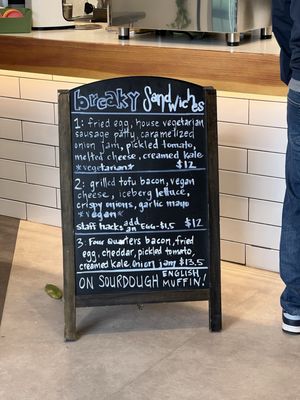 breaky Sandwiches
1: fried egg, house vegetarian
sausage patty, caramelized
onion jam, pickled tomato,
melted cheese, creamed kale
*vegetarian* $12
2: grilled tofu bacon, vegan
cheese, iceberg lettuce,
crispy onions, garlic mayo
*vegan*
staff hacks add an EGG-$1.5 $12
3: Four Quarters bacon, fried
egg, cheddar, pickled tomato,
creamed kale, onion jam $13.5
ON SOURDOUGH ENGLISH MUFFIN!